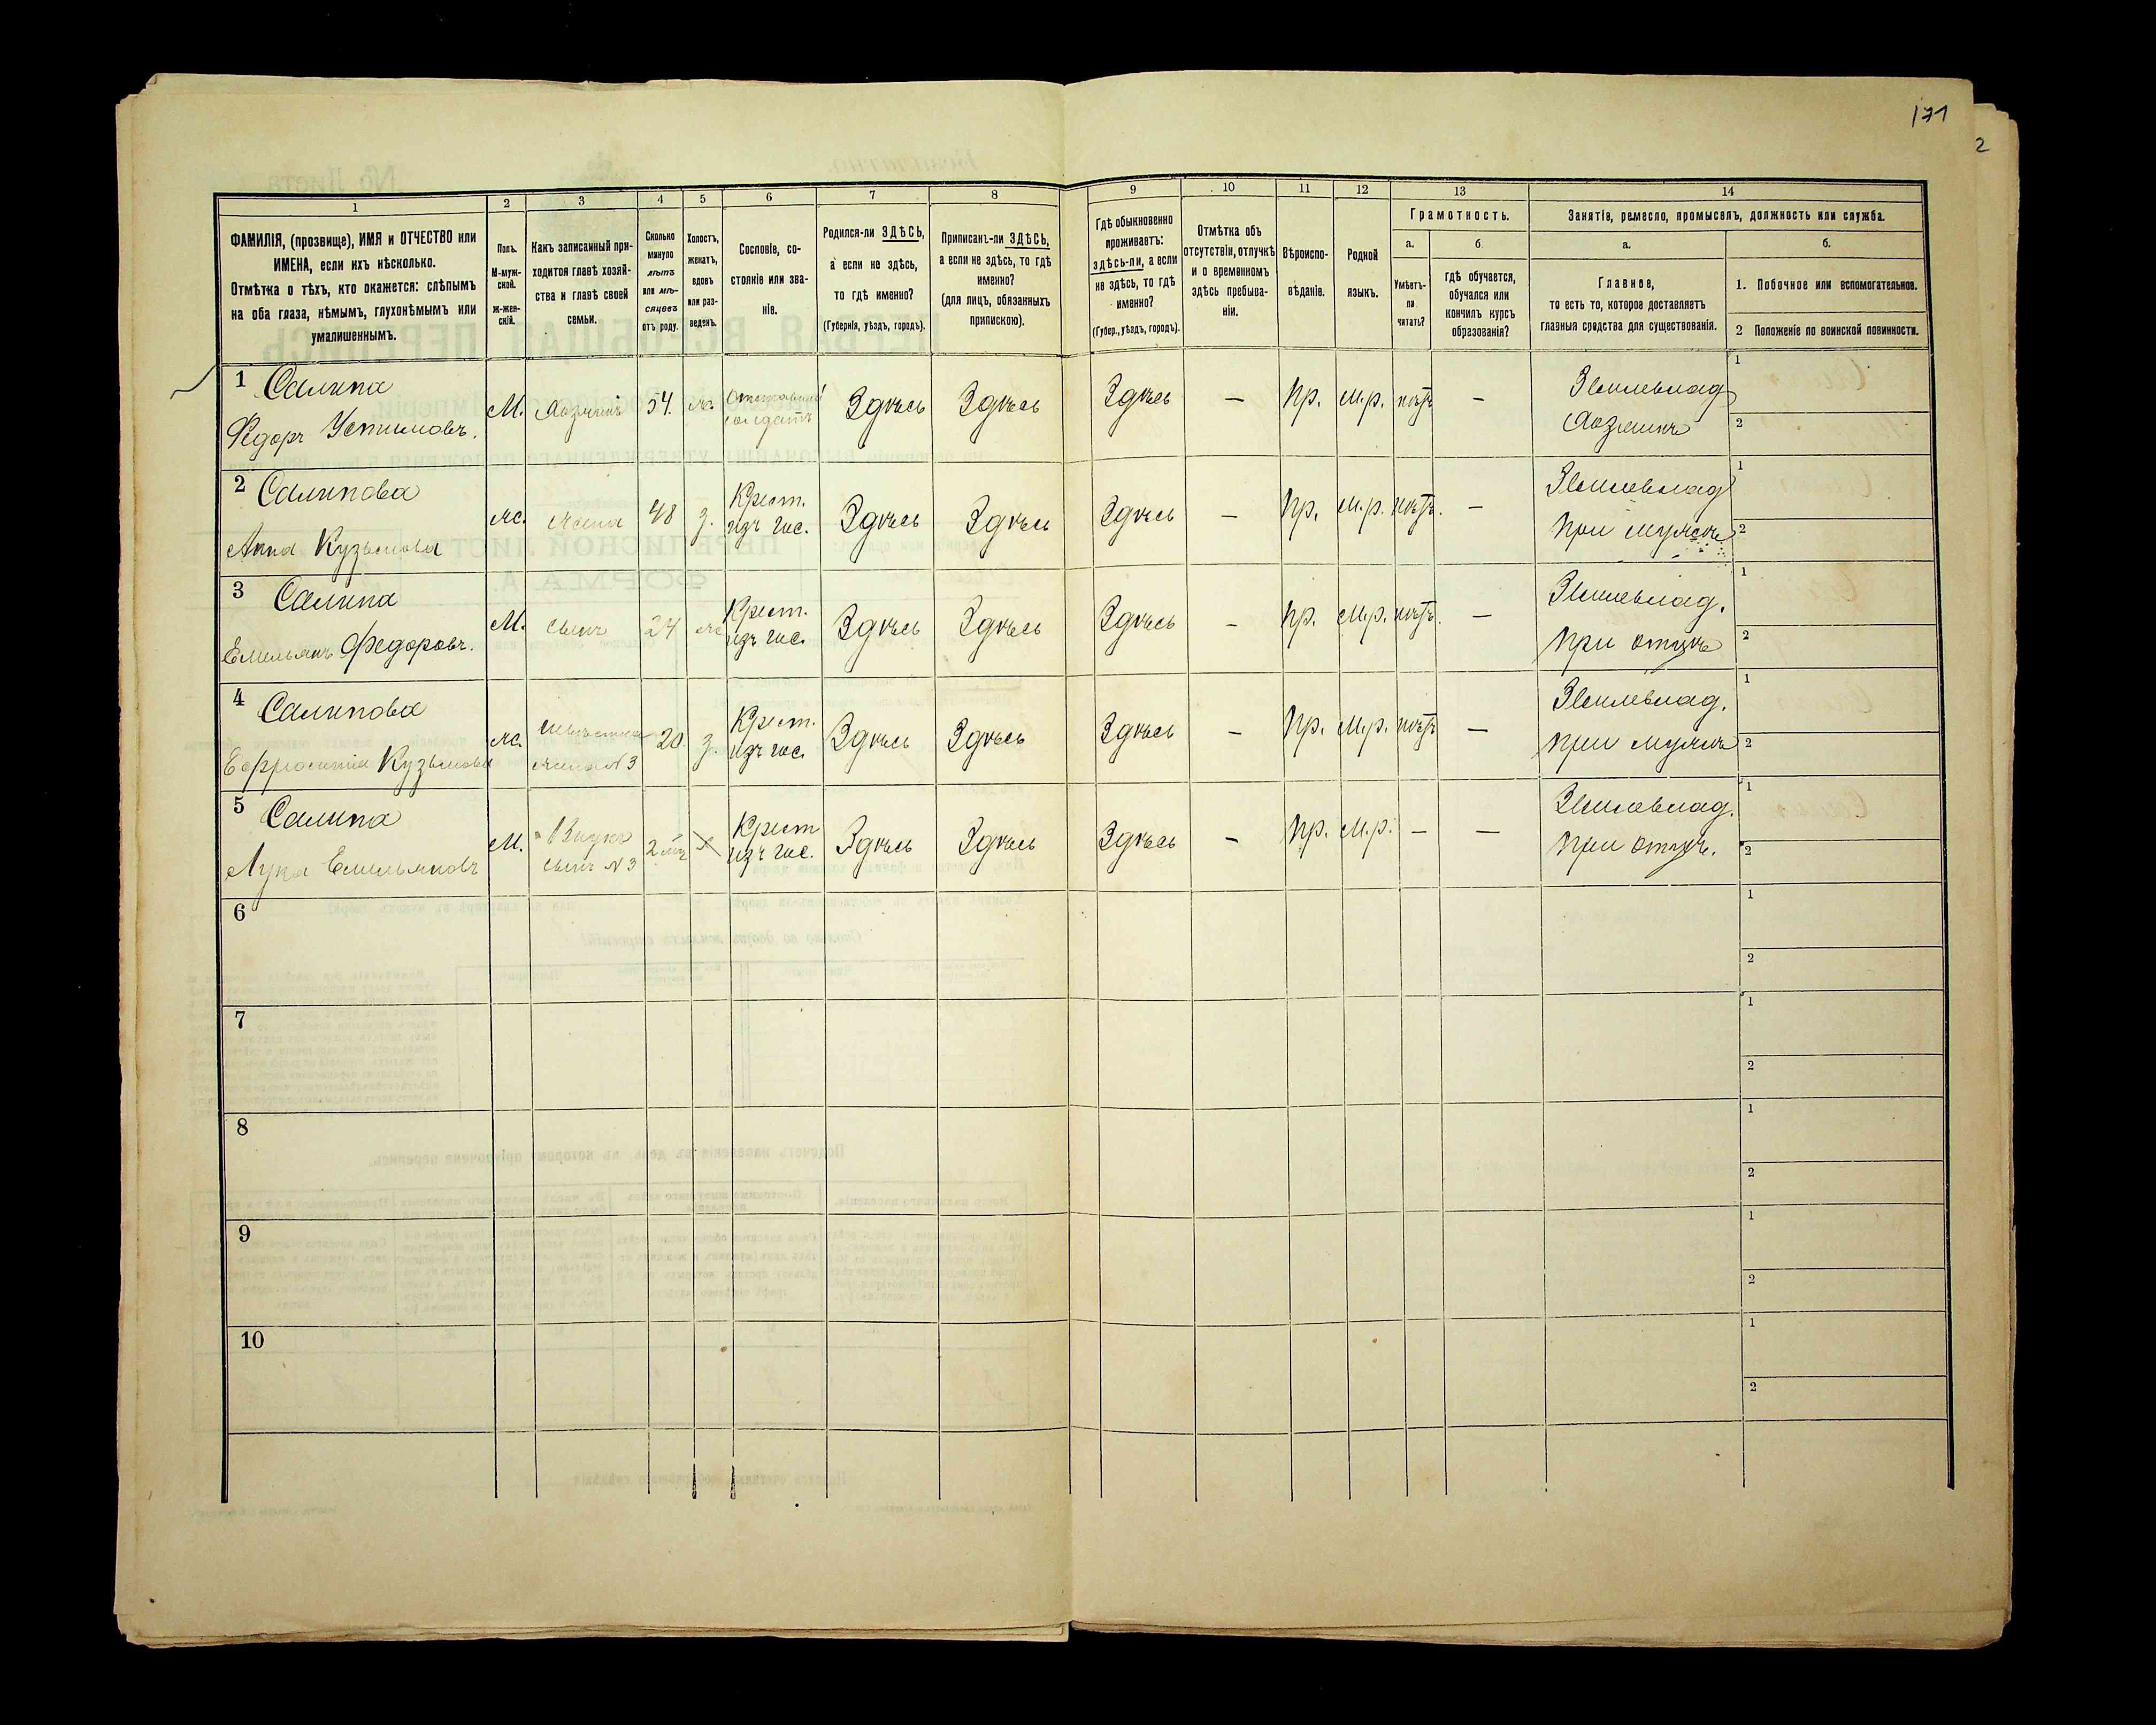 171
2
1
2
3
4
5
6
7
8
9
10
11
12
13
14
ФАМИЛІЯ, (прозвище), ИМЯ и ОТЧЕСТВО или
ИМЕНА, если ихъ нѣсколько.
Отмѣтка о тѣхъ, кто окажется: слѣпымъ
на оба глаза, нѣмымъ, глухонѣмымъ или
умалишеннымъ.
Полъ.
М-муж-
ской.
Ж-жен-
скій.
Какъ записанный при-
ходится главѣ хозяй-
ства и главѣ своей
семьи.
Сколько
минуло
лѣтъ
или мѣ-
сяцевъ
отъ роду.
Холостъ,
женатъ,
вдовъ
или раз-
веденъ.
Сословіе, со-
стояніе или зва-
ніе.
Родился-ли ЗДѢСЬ,
а если не здѣсь,
то гдѣ именно?
(Губернія, уѣздъ, городъ).
Приписанъ-ли ЗДѢСЬ,
а если не здѣсь, то гдѣ
именно?
(для лицъ, обязанныхъ
припискою).
Гдѣ обыкновенно
проживаетъ:
здѣсь-ли, а если
не здѣсь, то гдѣ
именно?
(Губер., уѣздъ, городъ).
Отмѣтка объ
отсутствіи, отлучкѣ
и о временномъ
здѣсь пребыва-
ніи.
Вѣроиспо-
вѣданіе.
Родной
языкъ.
Грамотность.
а.
Умѣетъ-
ли
читать?
б.
гдѣ обучается,
обучался или
кончилъ курсъ
образованія?
Занятія, ремесло, промыселъ, должность или служба.
а.
Главное,
то есть то, которое доставляетъ
главныя средства для существованія.
б.
1. Побочное или вспомогательное.
2 Положеніе по воинской повинности.
1 Салипа
Федоръ Устимовъ.
М.
Хозяинъ
54.
ж.
Отставный
солдатъ
Здѣсь
Здѣсь
Здѣсь
—
Пр.
М.р.
нѣтъ
—
Землевлад
Хозяинъ
1
2
2 Салипова
Анна Кузьмова
ж.
жена
48
з.
Крест.
изъ гос.
Здѣсь
Здѣсь
Здѣсь
—
Пр.
М.р.
нѣтъ.
—
Землевлад
при мужѣ
1
2
3 Салипа
Емельянъ Федоровъ.
М.
сынъ
24
ж
Крест.
изъ гос.
Здѣсь
Здѣсь
Здѣсь
—
Пр.
М.р.
нѣтъ.
—
Землевлад.
при отцѣ
1
2
4 Салипова
Евфросинія Кузьмова
ж.
невѣстка
жена N 3
20
з.
Крест.
изъ гос.
Здѣсь
Здѣсь
Здѣсь
—
Пр.
М.р.
нѣтъ
—
Землевлад.
при мужѣ
1
2
5 Салипа
Лука Емельяновъ
М.
Внукъ
сынъ N 3
2 мц
х
Крест
изъ гос.
Здѣсь
Здѣсь
Здѣсь
—
Пр.
М.р.
—
—
Землевлад.
при отцѣ.
1
2
6
1
2
7
1
2
8
1
2
9
1
2
10
1
2